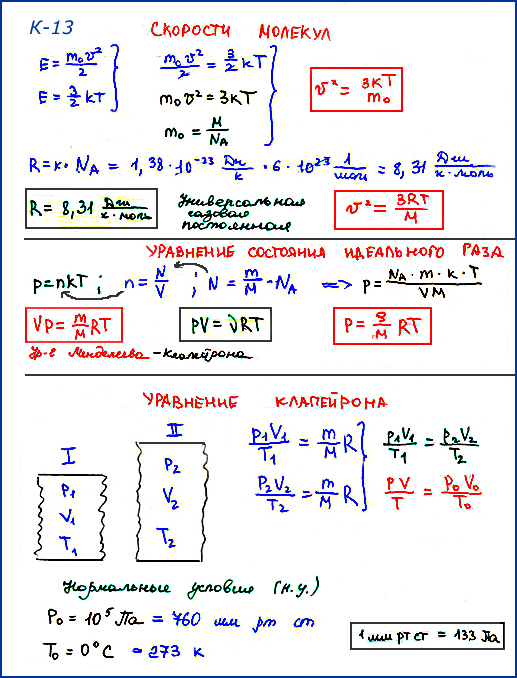 К-13 СКОРОСТИ МОЛЕКУЛ
E = m₀v²/2
E = 3/2 kT
m₀v²/2 = 3/2 kT
m₀v² = 3kT
m₀ = M/N_A
v² = 3kT/m₀
R = k · N_A = 1,38 · 10⁻²³ Дж/К · 6 · 10²³ 1/моль = 8,31 Дж/К·моль
R = 8,31 Дж/К·моль
Универсальная
газовая
постоянная
v² = 3RT/M
УРАВНЕНИЕ СОСТОЯНИЯ ИДЕАЛЬНОГО ГАЗА
p = nkT ; n = N/V ; N = m/M · N_A => P = N_A · m · k · T / VM
VP = m/M RT
PV = νRT
P = ρ/M RT
Ур-е Менделеева-Клапейрона
УРАВНЕНИЕ КЛАПЕЙРОНА
I
P₁
V₁
T₁
II
P₂
V₂
T₂
P₁V₁/T₁ = m/M R
P₂V₂/T₂ = m/M R
P₁V₁/T₁ = P₂V₂/T₂
PV/T = P₀V₀/T₀
Нормальные условия (н.у.)
P₀ = 10⁵ Па = 760 мм рт ст
T₀ = 0°C = 273 К
1 мм рт ст = 133 Па